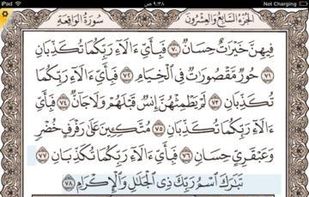 iPod ٩:٣٨ ص Not Charging
الجزء السابع والعشرون سورة الواقعة
فِيهِنَّ خَيْرَٰتٌ حِسَانٌ ٧٠ فَبِأَىِّ ءَالَآءِ رَبِّكُمَا تُكَذِّبَانِ
٧١ حُورٌ مَّقْصُورَٰتٌ فِى ٱلْخِيَامِ ٧٢ فَبِأَىِّ ءَالَآءِ رَبِّكُمَا
تُكَذِّبَانِ ٧٣ لَمْ يَطْمِثْهُنَّ إِنسٌ قَبْلَهُمْ وَلَا جَآنٌّ ٧٤ فَبِأَىِّ
ءَالَآءِ رَبِّكُمَا تُكَذِّبَانِ ٧٥ مُتَّكِـِٔينَ عَلَىٰ رَفْرَفٍ خُضْرٍ
وَعَبْقَرِىٍّ حِسَانٍ ٧٦ فَبِأَىِّ ءَالَآءِ رَبِّكُمَا تُكَذِّبَانِ ٧٧
تَبَٰرَكَ ٱسْمُ رَبِّكَ ذِى ٱلْجَلَٰلِ وَٱلْإِكْرَامِ ٧٨